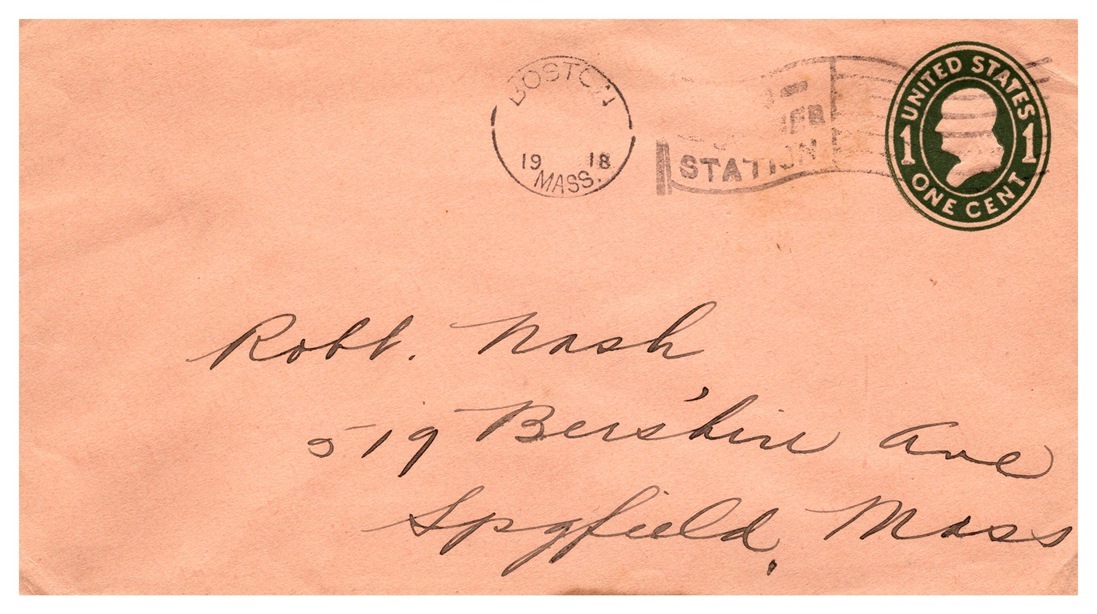 BOSTON
19 18
MASS.
STATION
UNITED STATES
1 1
ONE CENT
Robt. Nash
519 Bershire Ave
Spgfield, Mass